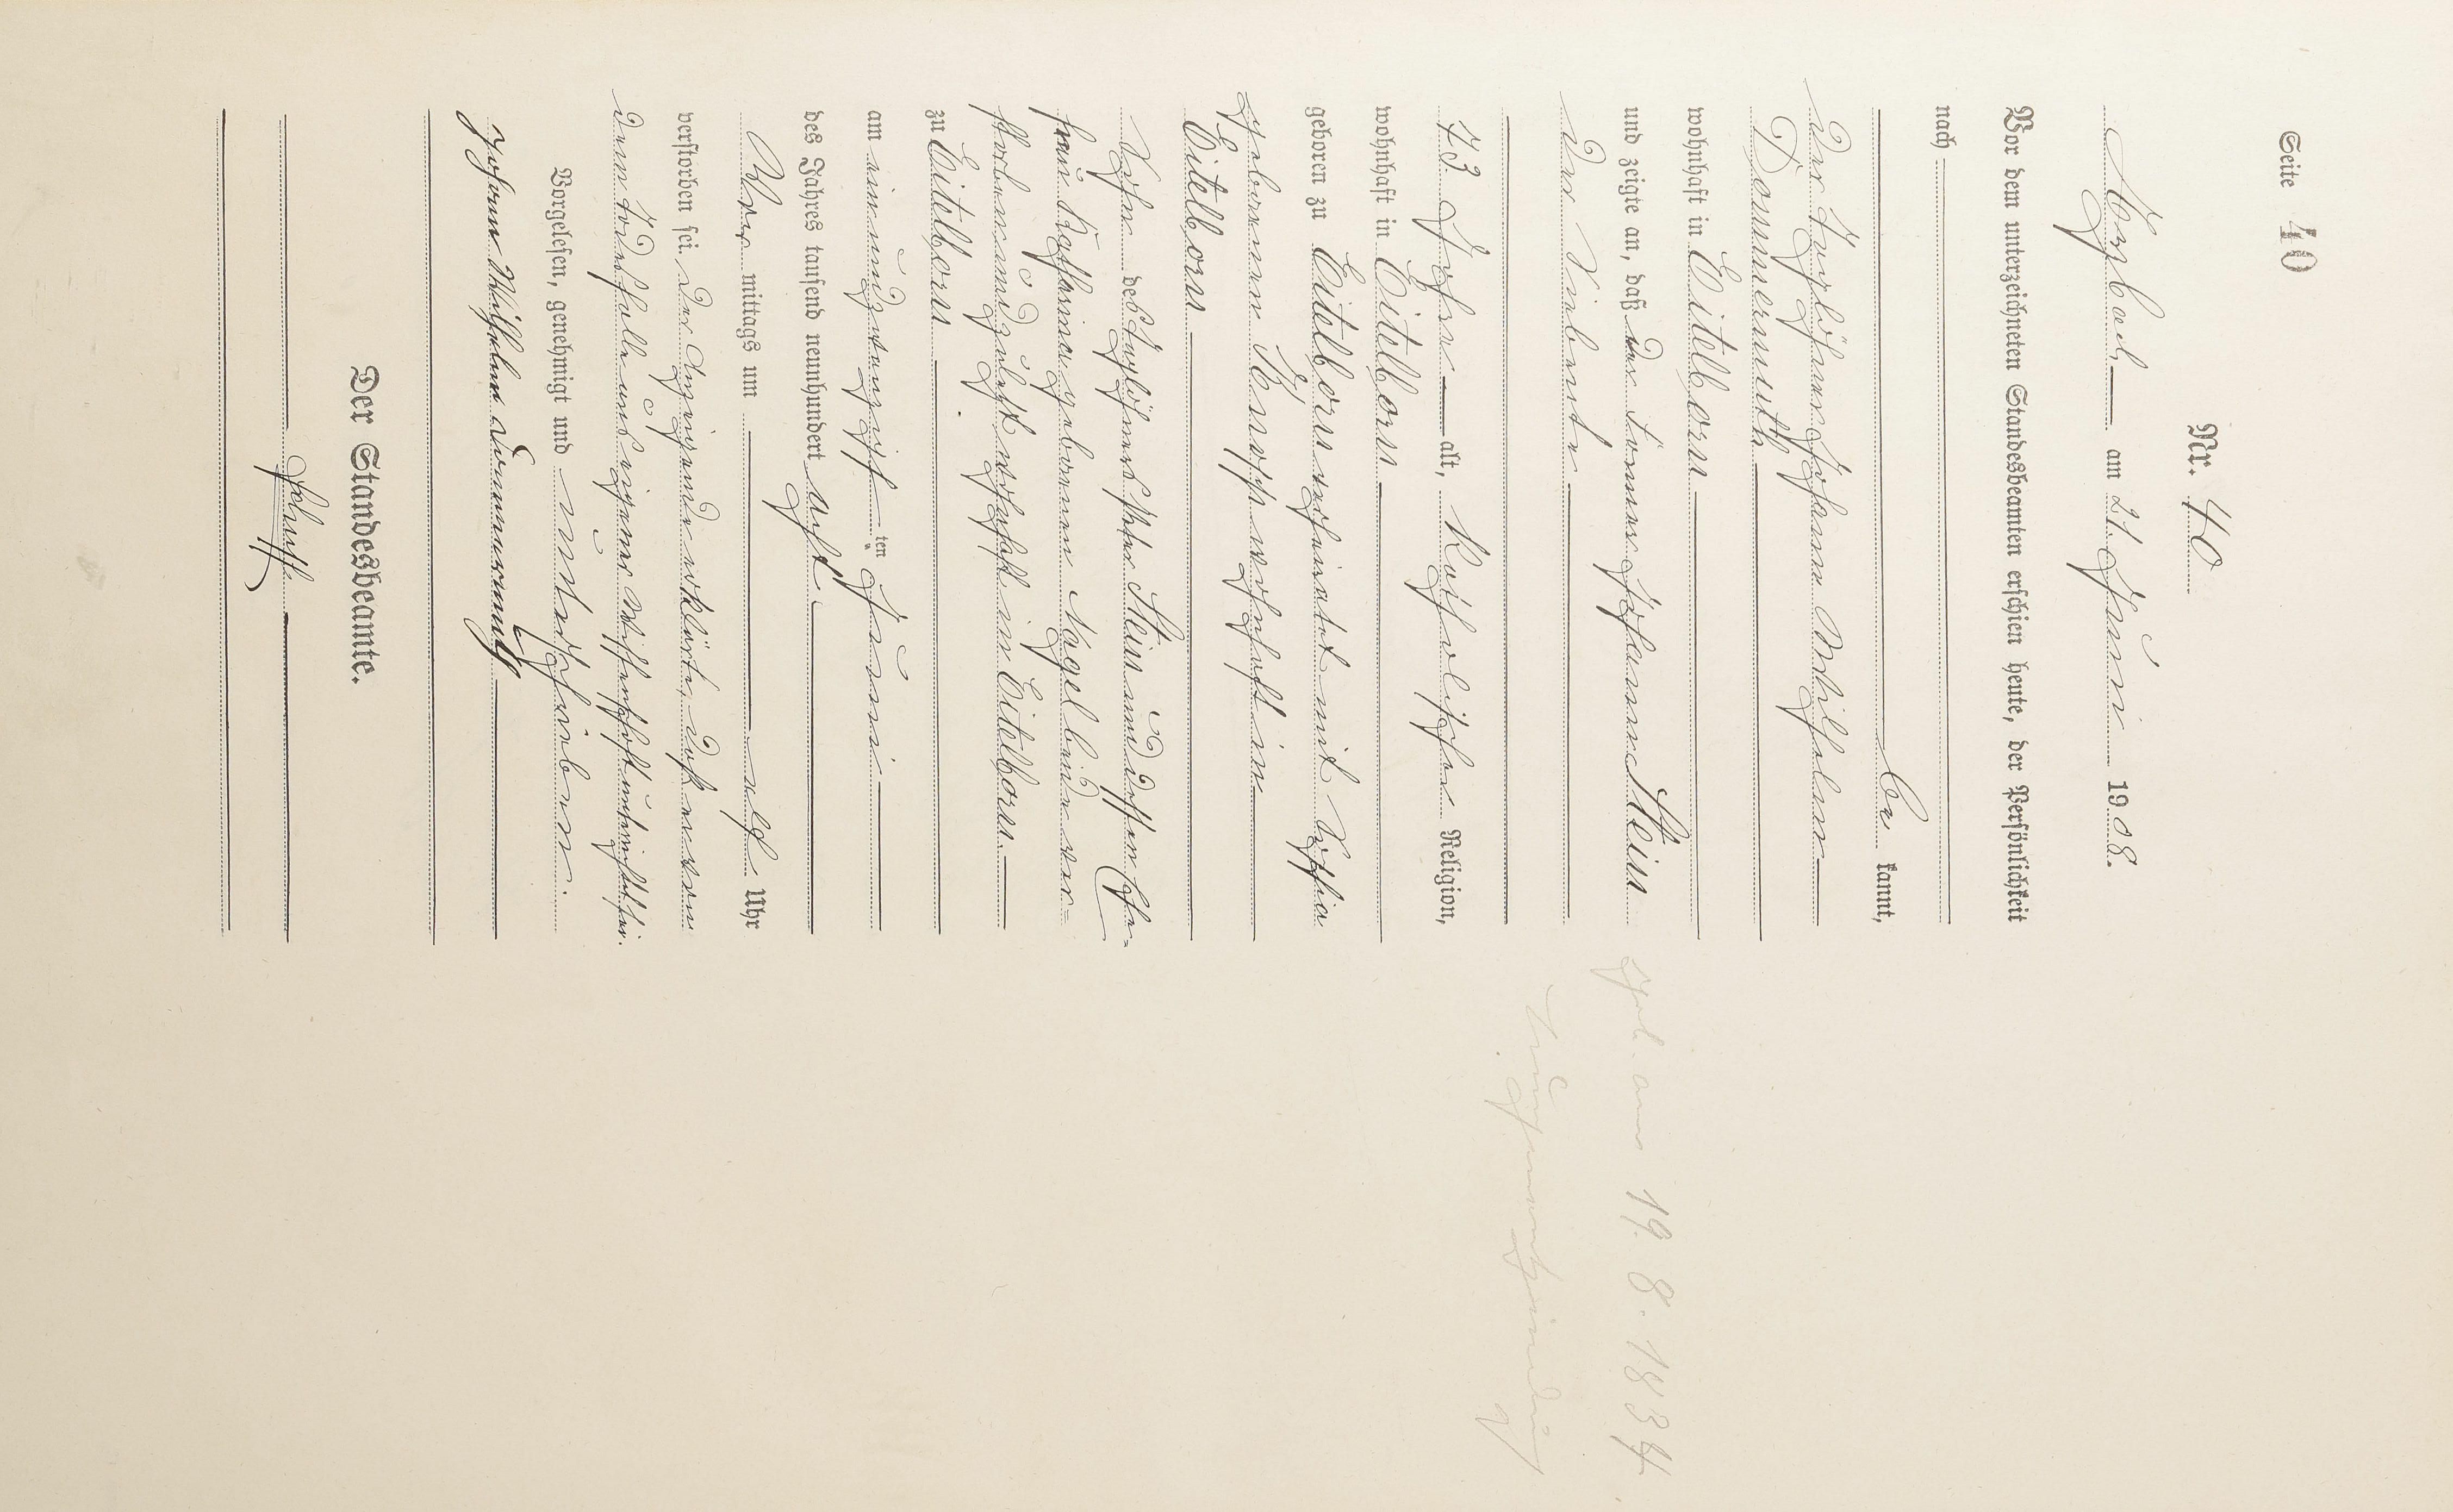 Seite 40
Nr. 40
Arzbach am 21. Juni 1908.
Vor dem unterzeichneten Standesbeamten erschien heute, der Persönlichkeit
nach
be kannt,
der Tagelöhner Johann Wilhelm
Dommermuth
wohnhaft in Eitelborn
und zeigte an, daß der Tönner Johann Stein
der Siebente
73 Jahre alt, katholischer Religion,
wohnhaft in Eitelborn
geboren zu Eitelborn verheiratet mit Sophia
geborenen Knopp wohnhaft in
Eitelborn
Sohn des Tagelöhners Peter Stein und dessen Ehe-
frau Katharina geborenen Nagel beide ver-
storben und zuletzt wohnhaft in Eitelborn.
zu Eitelborn
am einundzwanzigsten Juni
des Jahres tausend neunhundert acht
Vor mittags um elf Uhr
verstorben sei. Der Anzeigende erklärte, daß er von
dem Todesfalle aus eigener Wissenschaft unterrichtet sei.
Vorgelesen, genehmigt und unterschrieben.
Johann Wilhelm Dommermuth
Der Standesbeamte.
geb. am 19. 8. 1834